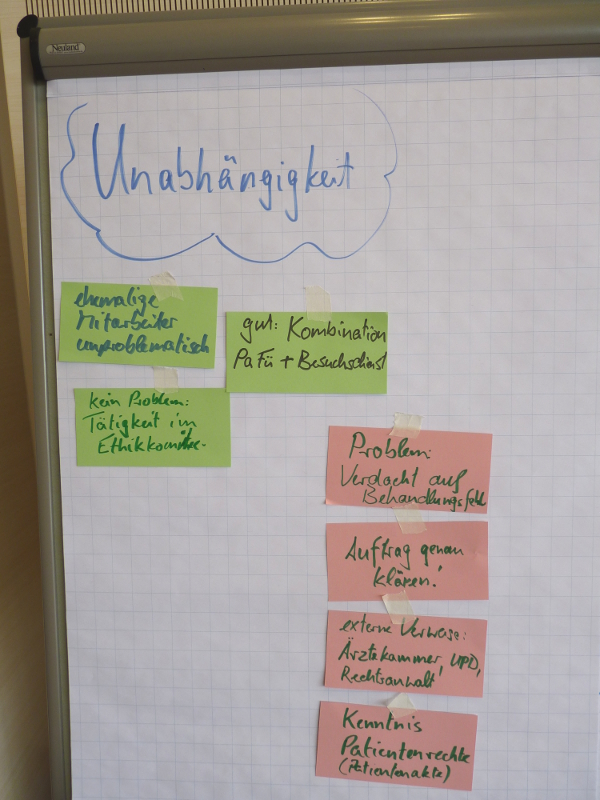 Neuland
Unabhängigkeit
ehemalige
Mitarbeiter
unproblematisch
gut: Kombination
PaFü + Besuchsdienst
kein Problem:
Tätigkeit im
Ethikkomitee.
Problem:
Verdacht auf
Behandlungsfehl
Auftrag genau
klären!
externe Verweise:
Ärztekammer, UPD,
Rechtsanwalt
Kenntnis
Patientenrechte
(Patientenakte)